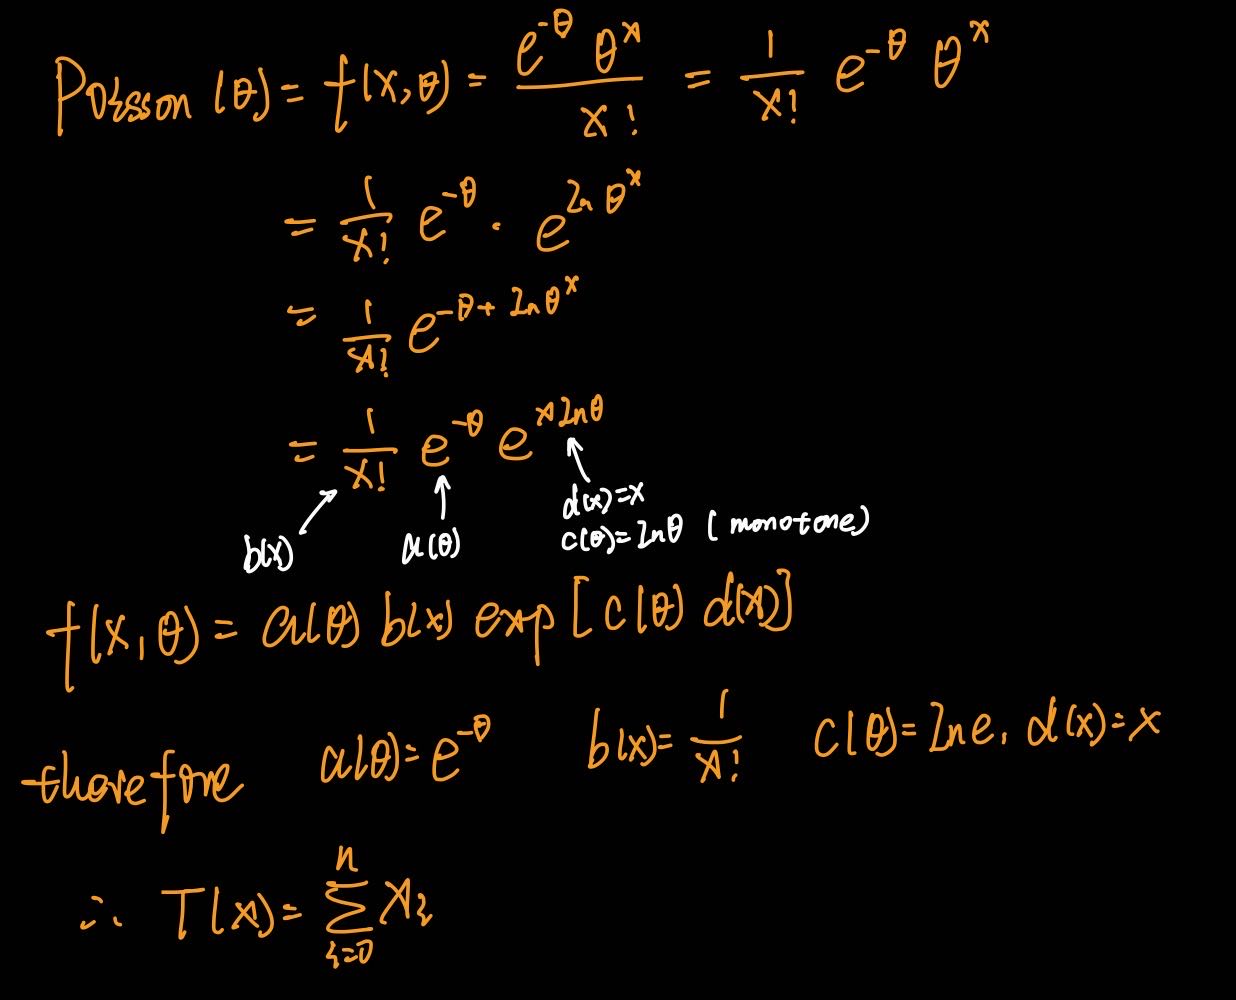 Poisson (θ) = f(x,θ) = e^{-θ} θ^x / x! = 1/x! e^{-θ} θ^x
= 1/x! e^{-θ} · e^{ln θ^x}
= 1/x! e^{-θ + ln θ^x}
= 1/x! e^{-θ} e^{x ln θ}
b(x) a(θ) d(x)=x
c(θ)=lnθ (monotone)
f(x,θ) = a(θ) b(x) exp[c(θ) d(x)]
therefore a(θ)=e^{-θ} b(x)=1/x! c(θ)=ln e, d(x)=x
∴ T(x)= ∑_{i=0}^{n} x_i